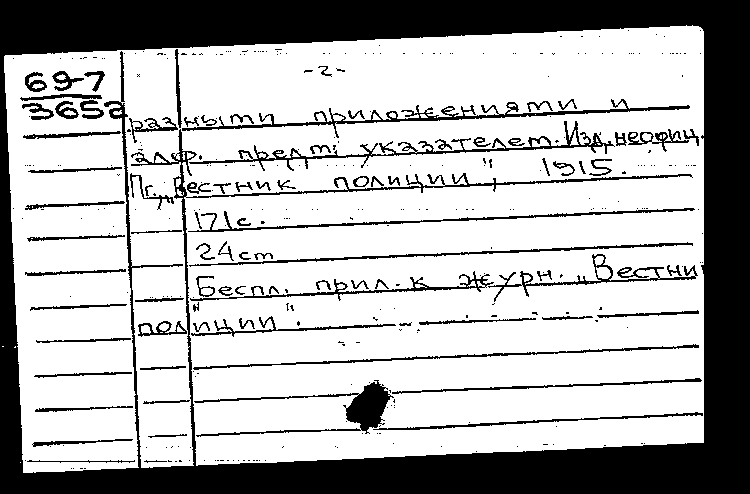 69-7
3652
-2-
разными приложениями и
алф. предм. указателем. Изд. неофиц.
Пг., „Вестник полиции", 1915.
171с.
24см
Беспл. прил. к журн. „Вестник
полиции".